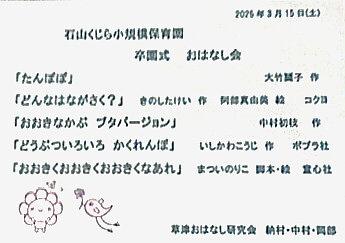 2025年3月15日(土)
石山くじら小規模保育園
卒園式　おはなし会
「たんぽぽ」　大竹麗子　作
「どんなはながさく？」　きのしたけい　作　阿部真由美　絵　コクヨ
「おおきなかぶ　ブタバージョン」　中村初枝　作
「どうぶついろいろ　かくれんぼ」　いしかわこうじ　作　ポプラ社
「おおきくおおきくおおきくなあれ」　まついのりこ　脚本・絵　童心社
草津おはなし研究会　納村・中村・岡部